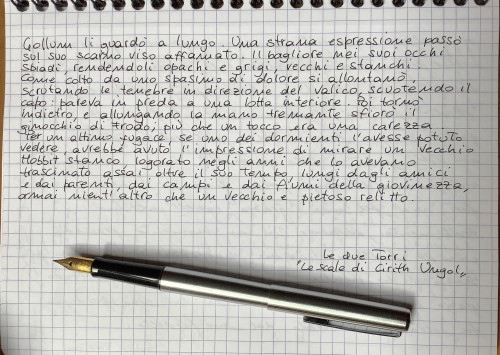 Gollum li guardò a lungo. Una strana espressione passò
sul suo scarno viso affamato. Il bagliore nei suoi occhi
sbiadì, rendendoli opachi e grigi, vecchi e stanchi.
Come colto da uno spasimo di dolore si allontanò,
scrutando le tenebre in direzione del valico, scuotendo il
capo: pareva in preda a una lotta interiore. Poi tornò
indietro, e allungando la mano tremante sfiorò il
ginocchio di Frodo, più che un tocco era una carezza.
Per un attimo fugace, se uno dei dormienti l'avesse potuto
vedere, avrebbe avuto l'impressione di mirare un vecchio
Hobbit stanco, logorato negli anni che lo avevano
trascinato assai oltre il suo tempo, lungi dagli amici
e dai parenti, dai campi e dai fiumi della giovinezza,
ormai nient'altro che un vecchio e pietoso relitto.
Le due Torri
"Le scale di Cirith Ungol"